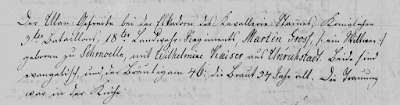 Der Ulan-Gefreite bei der Eskadron des Kavallerie Stammes Königlichen
3ten Bataillons, 18ten Landwehr-Regiments Martin Gross, (ein Wittwer)
geboren zu Schmoelle, mit Wilhelmine Kaiser aus Unruhstadt. Beide sind
evangelisch, und der Bräutigam 46. die Braut 34 Jahr alt. Die Trauung
war in der Kirche.